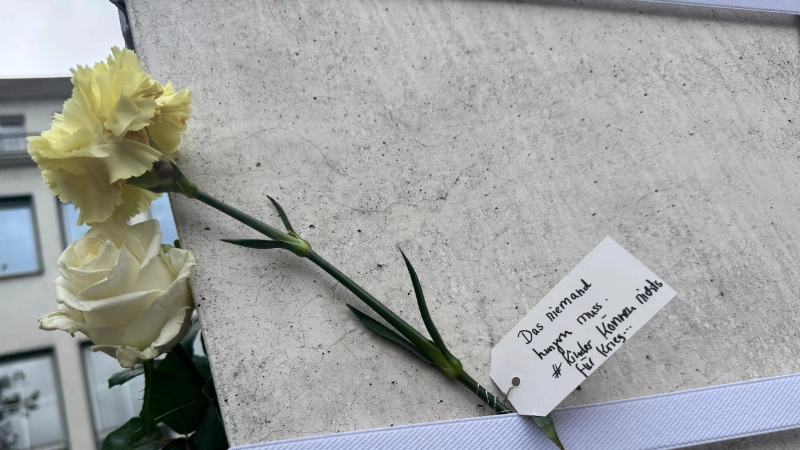 Das niemand
hungern muss.
# Kinder können nichts
für Krieg...